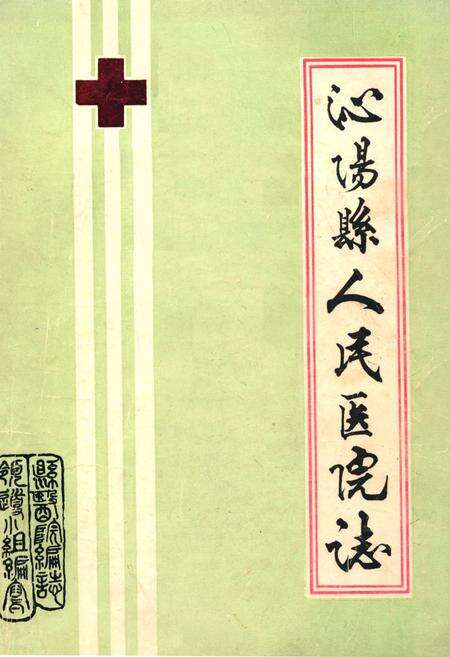 沁陽縣人民医院誌
縣醫院編志
領導小組編寫